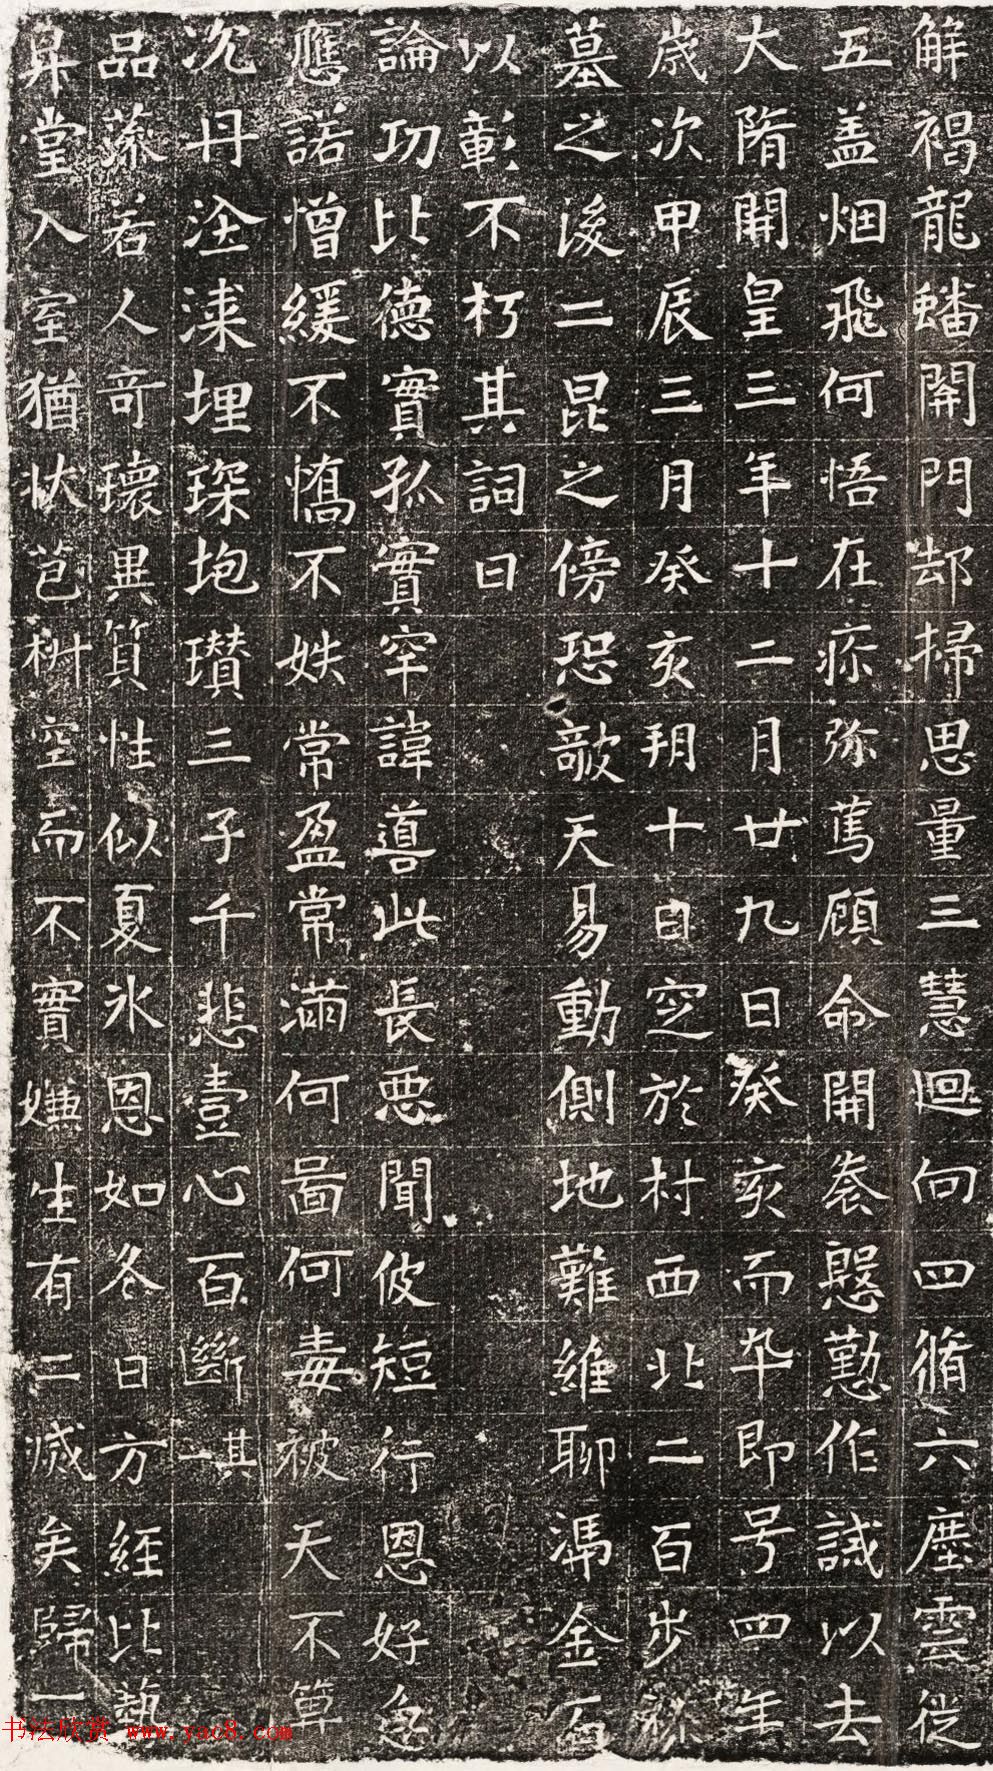 解褐龍蟠開門却掃思量三慧迴向四脩六塵雲從
五盖烟飛何悟在疹弥篤顧命開袠慇懃作誡以去
大隋開皇三年十二月廿九日癸亥而卒即号四年
歳次甲辰三月癸亥朔十日窆於村西北二百步
墓之後二昆之傍恐敧天易動側地難維聊馮金石
以彰不朽其詞曰
論功比德實孤實罕諱善此長惡聞彼短行恩好
應諾憎緩不憍不姝常盈常滿何啚何毒被天不算
沉丹塗漆埋琛抱瓚三子千悲壹心百斷其一
品藻若人奇瓌異質性似夏氷恩如冬日方經比藝
昇堂入室猶状苞桝空而不實嫌生有二滅矣歸一
书法欣赏 www.yac8.com